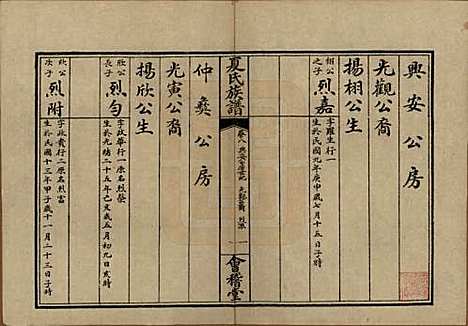 興安公房
光觀公裔
揚栩公生
栩公之子
烈嘉
字羅生行一
生於民國九年庚申歲七月十五日子時
夏氏族譜
卷八
會稽堂
仲彝公房
光寅公裔
揚欣公生
欣公長子
烈勻
字政華行一原名烈榮
生於光緒二十五年己亥歲五月初九日亥時
欣公次子
烈附
字政貴行二原名烈富
生於民國十三年甲子歲十一月二十三日子時